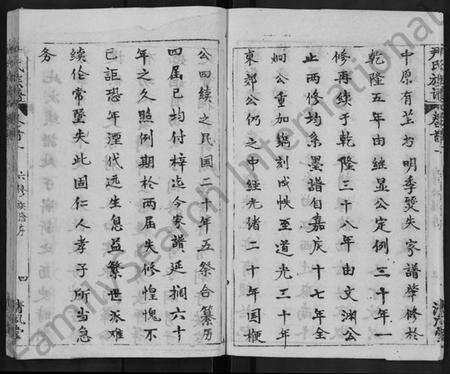 尹氏族譜
卷首一
清風堂
中原有茲方明季燹失家譜肇修於
乾隆五年由継显公定例三十年一
修再续于乾隆三十八年由文渊公
止两修均系墨譜自嘉庆十七年全
炯公重加鐫刻成帙至道光三十年
東郊公仍之中经光绪二十年国梗
公四续之民国二十年五祭合纂历
四届已均付梓迄今家譜延搁六十
年之久照例期於两届失修惶愧不
已詎恐年湮代远生息益繁世派难
续伦常墜失此固仁人孝子所当急
务
卷首一
六修族譜序
四
清風堂
Family Search International